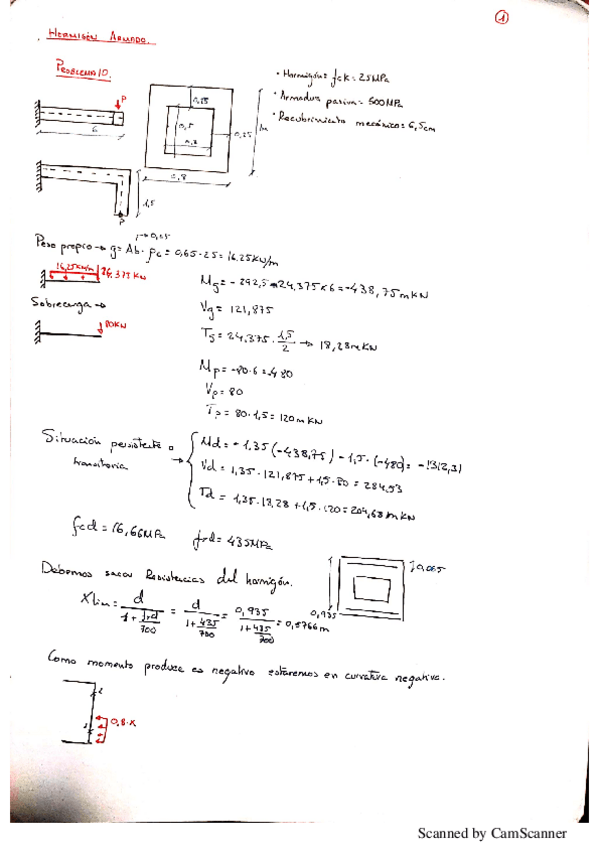 1
HORMIGÓN ARMADO.
PROBLEMA 10.
· Hormigón: fck = 25 MPa
· Armadura pasiva = 500 MPa
· Recubrimiento mecánico = 6,5 cm
P
6
0,25
0,5
0,3
0,25
1m
0,8
1,5
P
→ 0,65
Peso propio → g = Ab · ρc = 0,65 · 25 = 16,25 KN/m
16,25 KN/m
24,375 KN
Mg = - 292,5 - 24,375 x 6 = -438,75 mKN
Sobrecarga →
80KN
Vg = 121,875
Tg = 24,375 · 1,5/2 → 18,28 mKN
Mp = -80·6 = -480
Vp = 80
Tp = 80 · 1,5 = 120 mKN
Situación persistente o transitoria →
Md = - 1,35 (-438,75) - 1,5 · (-480) = -1312,31
Vd = 1,35 · 121,875 + 1,5 · 80 = 284,53
Td = 1,35 · 18,28 + 1,5 · 120 = 204,68 mKN
fcd = 16,66 MPa fyd = 435 MPa
Debemos sacar Resistencias del hormigón.
0,065
0,935
Xlim = d / (1 + fyd/700) = d / (1 + 435/700) = 0,935 / (1 + 435/700) = 0,5766 m
Como momento produce es negativo estaremos en curvatura negativa.
2
0,8·x